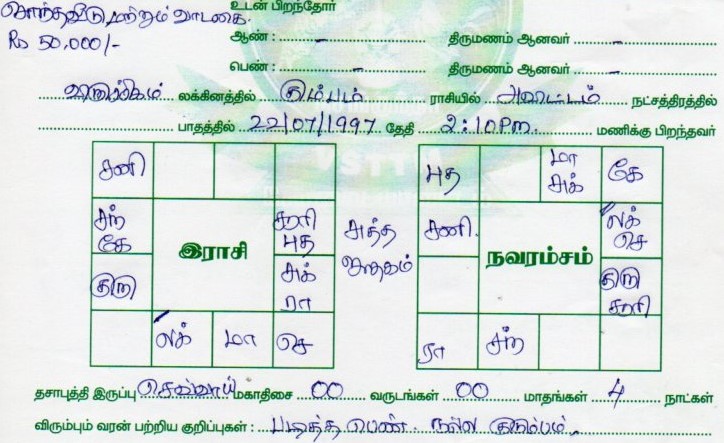 சொந்தவீடு, மற்றும் வாடகை.
Rs 50,000/-
உடன் பிறந்தோர்
ஆண் : - திருமணம் ஆனவர் -
பெண் : - திருமணம் ஆனவர் -
விருச்சிகம் லக்கினத்தில் கும்பம் ராசியில் அவிட்டம் நட்சத்திரத்தில்
பாதத்தில் 22/07/1997 தேதி 2:10Pm. மணிக்கு பிறந்தவர்
சனி
சந் கே
சூரி புத
குரு
சுக் ரா
லக் மா செ
இராசி
சுத்த ஜாதகம்
புத மா சுக் கே
சனி.
லக் செ
குரு சூரி
ரா சந்
நவாம்சம்
தசாபுத்தி இருப்பு செவ்வாய் மகாதிசை 00 வருடங்கள் 00 மாதங்கள் 4 நாட்கள்
விரும்பும் வரன் பற்றிய குறிப்புகள் : படித்த பெண். நல்ல குடும்பம்.